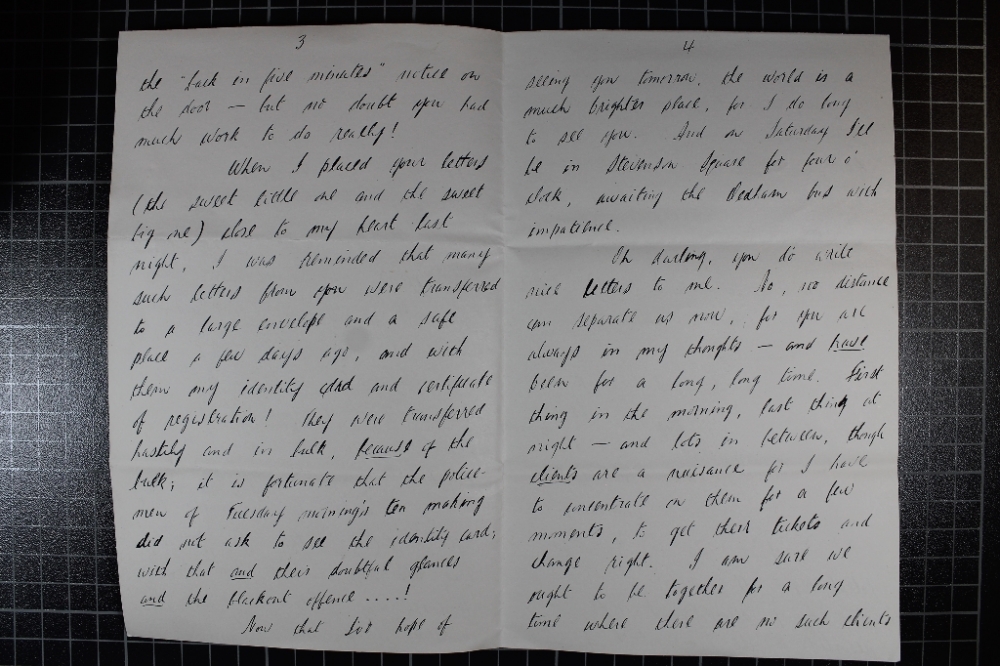 3
the "back in five minutes" notice on
the door — but no doubt you had
much work to do really!
When I placed your letters
(the sweet little one and the sweet
big one) close to my heart last
night, I was reminded that many
such letters from you were transferred
to a large envelope and a safe
place a few days ago, and with
them my identity card and certificate
of registration! They were transferred
hastily and in bulk, because of the
bulk; it is fortunate that the police-
men of Tuesday morning's ten making
did not ask to see the identity card;
with that and their doubtful glances
and the blackout offence ....!
Now that hope of
4
seeing you tomorrow, the world is a
much brighter place, for I do long
to see you. And on Saturday I'll
be in Stevenson Square for four o'
clock, awaiting the bus with
impatience.
Oh darling, you do write
nice letters to me. No, no distance
can separate us now, for you are
always in my thoughts — and have
been for a long, long time. First
thing in the morning, last thing at
night — and lots in between, though
clients are a nuisance for I have
to concentrate on them for a few
moments, to get their tickets and
change right. I am sure we
ought to be together for a long
time where there are no such clients